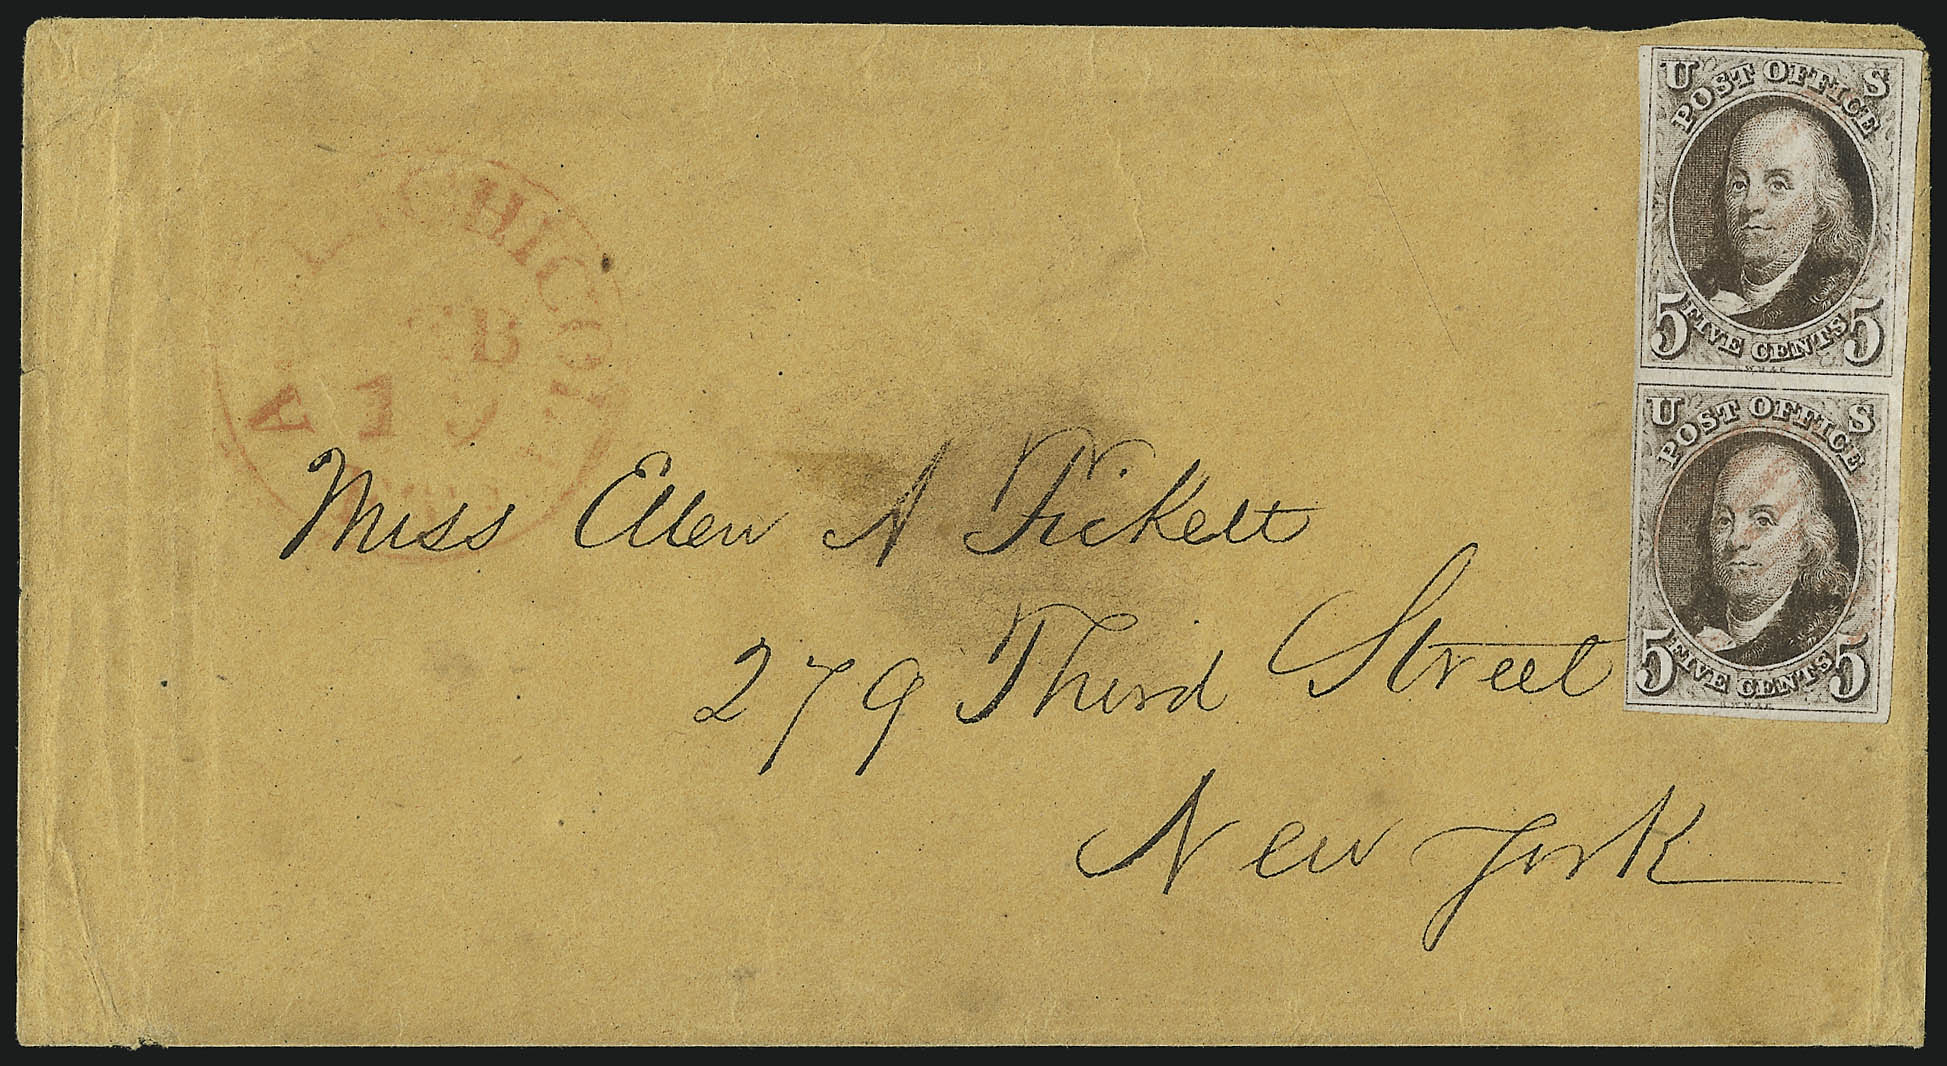 U S
POST OFFICE
5 FIVE CENTS 5
U S
POST OFFICE
5 FIVE CENTS 5
Miss Ellen N Fickett
279 Third Street
New York